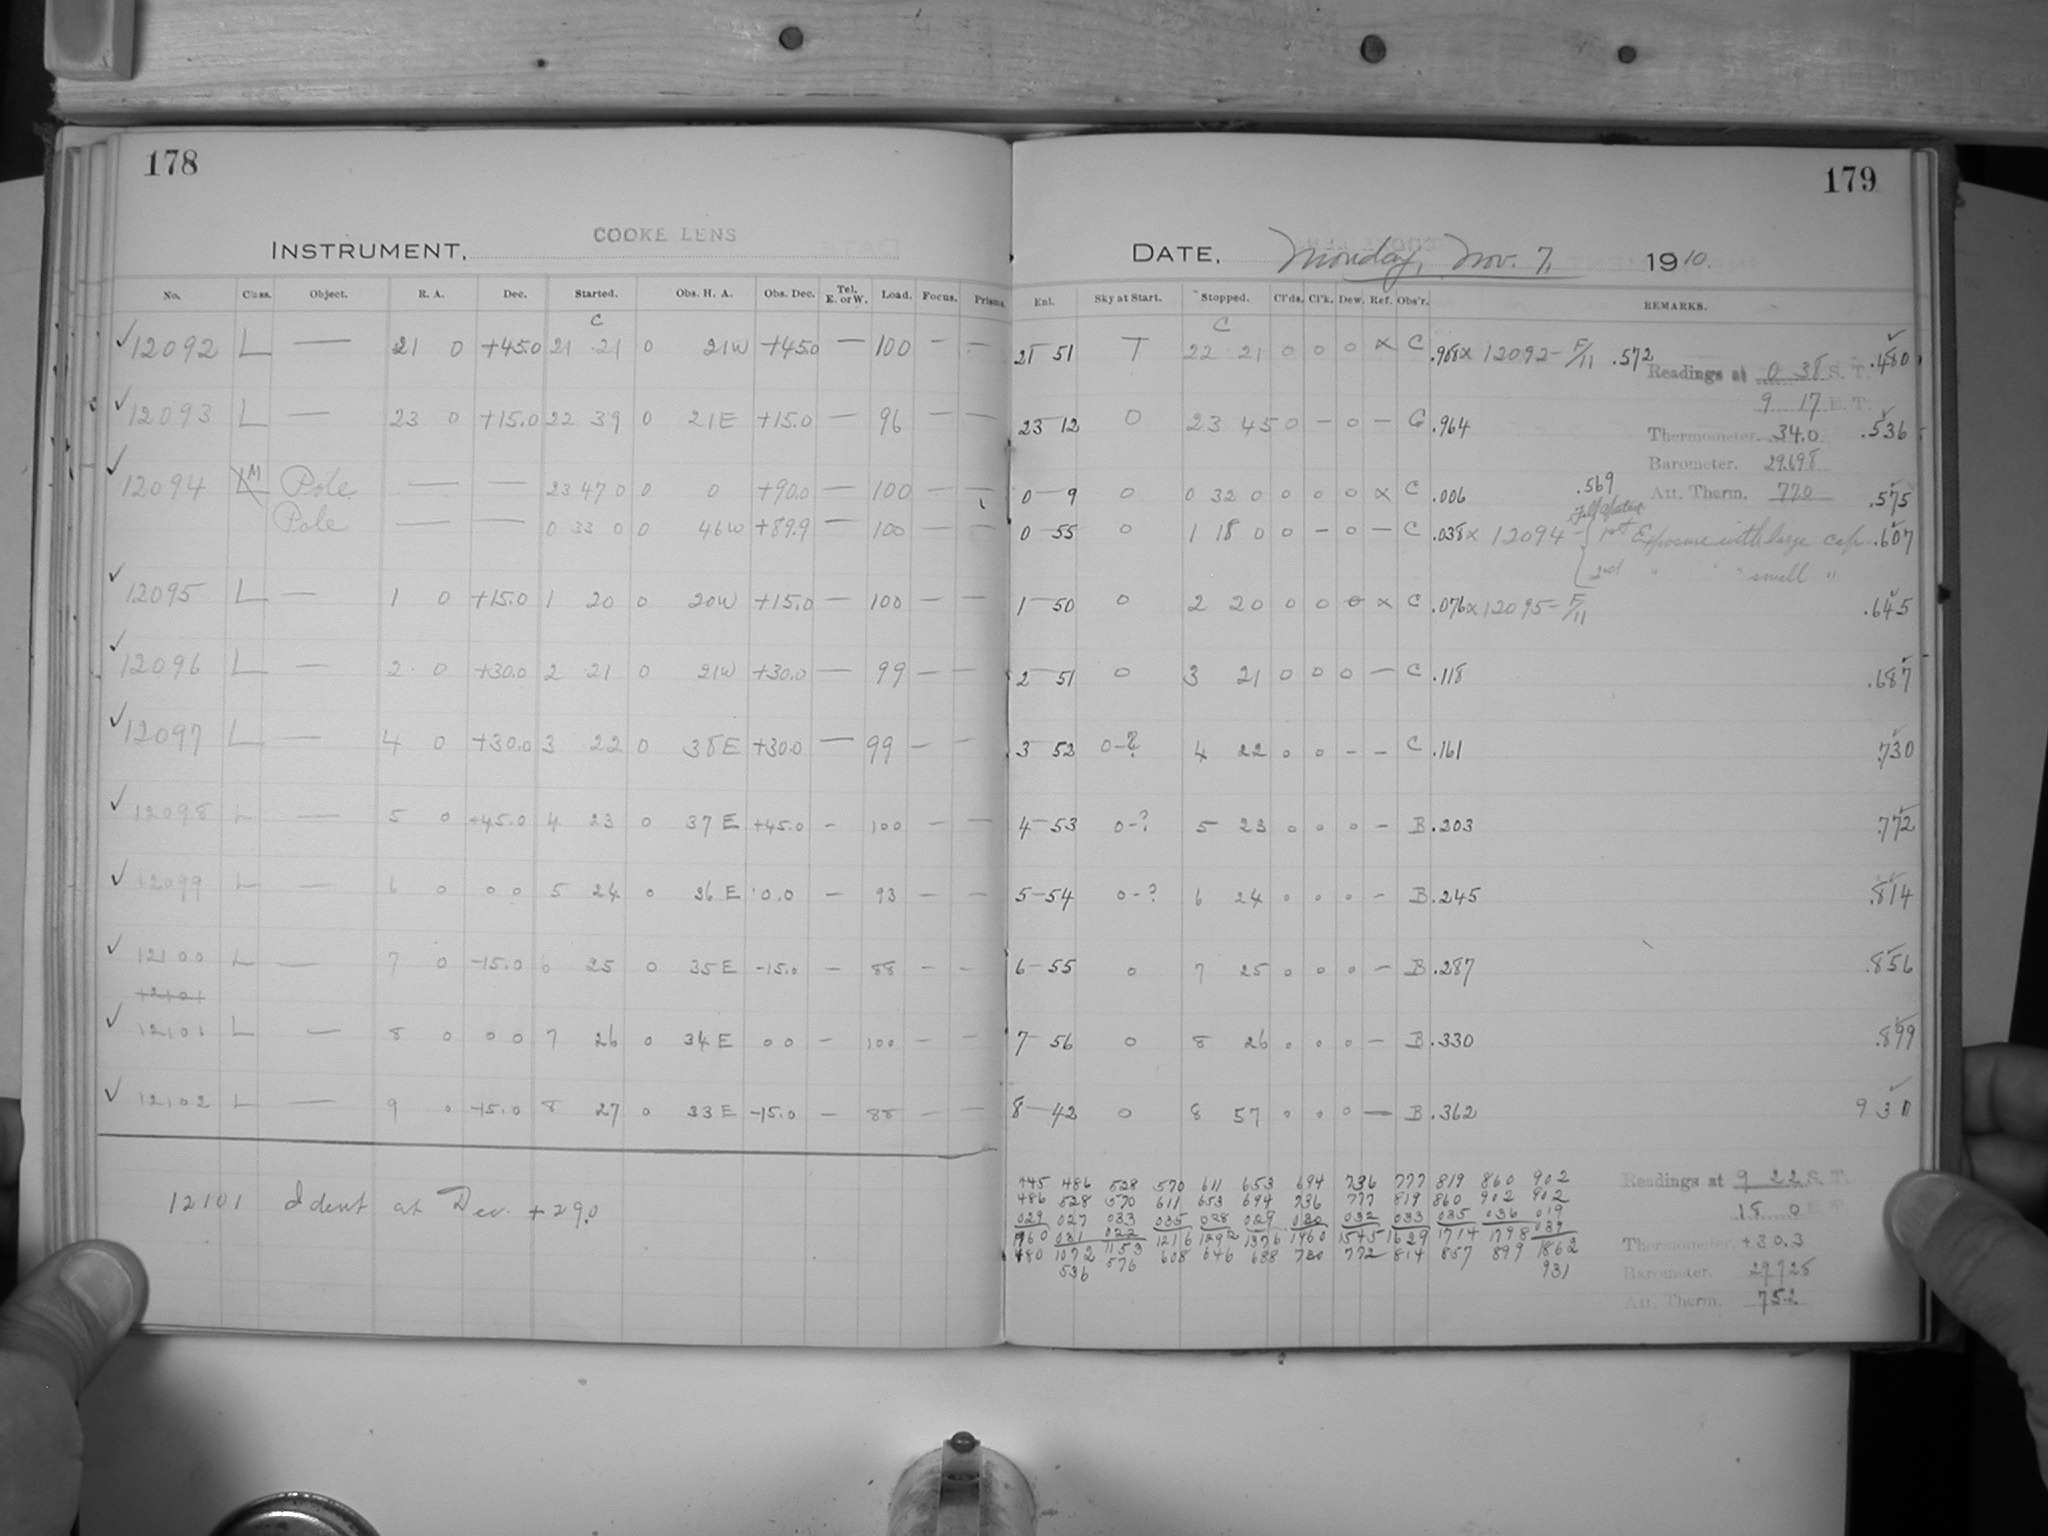 178
COOKE LENS
INSTRUMENT,
No. Class. Object. R. A. Dec. Started. Obs. H. A. Obs. Dec. Tel. E. or W. Load. Focus. Prisms.
C
✓ 12092 L — 21 0 +45.0 21 21 0 21W +45.0 — 100 — —
✓ 12093 L — 23 0 +15.0 22 39 0 21E +15.0 — 96 — —
✓ 12094 M Pole — — 23 47 0 0 0 +90.0 — 100 — —
Pole — — 0 33 0 0 46W +89.9 — 100 — —
✓ 12095 L — 1 0 +15.0 1 20 0 20W +15.0 — 100 — —
✓ 12096 L — 2 0 +30.0 2 21 0 21W +30.0 — 99 — —
✓ 12097 L — 4 0 +30.0 3 22 0 38E +30.0 — 99 — —
✓ 12098 L — 5 0 +45.0 4 23 0 37E +45.0 — 100 — —
✓ 12099 L — 6 0 0 0 5 24 0 36E 0.0 — 93 — —
✓ 12100 L — 7 0 -15.0 6 25 0 35E -15.0 — 88 — —
12101
✓ 12101 L — 8 0 0 0 7 26 0 34E 0 0 — 100 — —
✓ 12102 L — 9 0 -15.0 8 27 0 33E -15.0 — 88 — —
12101 Ident at Dec. +29.0
179
DATE, Monday, Nov. 7, 1910.
Enl. Sky at Start. Stopped. Cl'ds. Cl'k. Dew. Ref. Obs'r. REMARKS.
C
21 51 T 22 21 0 0 0 x C .908x 12092 - F/11 .572 .480
Readings at 0 38 S. T.
9 17 E. T.
23 12 0 23 45 0 - 0 - C .964 .536
Thermometer. 34.0
Barometer. 29.698
0 9 0 0 32 0 0 0 0 x C .006 .569 .575
Att. Therm. 77.0
0 55 0 1 18 0 0 - 0 - C .038x 12094 - 1st Exposure with large cap .607
2nd " " " small "
1 50 0 2 20 0 0 0 x C .076x 12095 - F/11 .645
2 51 0 3 21 0 0 0 — C .118 .687
3 52 0-? 4 22 0 0 - - C .161 .730
4-53 0-? 5 23 0 0 0 - B .203 .772
5-54 0-? 6 24 0 0 0 - B .245 .814
6-55 0 7 25 0 0 0 - B .287 .856
7-56 0 8 26 0 0 0 - B .330 .899
8-42 0 8 57 0 0 0 — B .362 931
445 486 528 570 611 653 694 736 777 819 860 902
486 528 570 611 653 694 736 777 819 860 902 902
029 027 033 035 028 029 030 032 033 035 036 019
960 031 022 1216 1292 1376 1460 1545 1629 1714 1798 039
480 1072 1153 608 646 688 730 772 814 857 899 1862
536 576 931
Readings at 9 22 S. T.
18 0 E. T.
Thermometer. +30.3
Barometer. 29.725
Att. Therm. 75.2